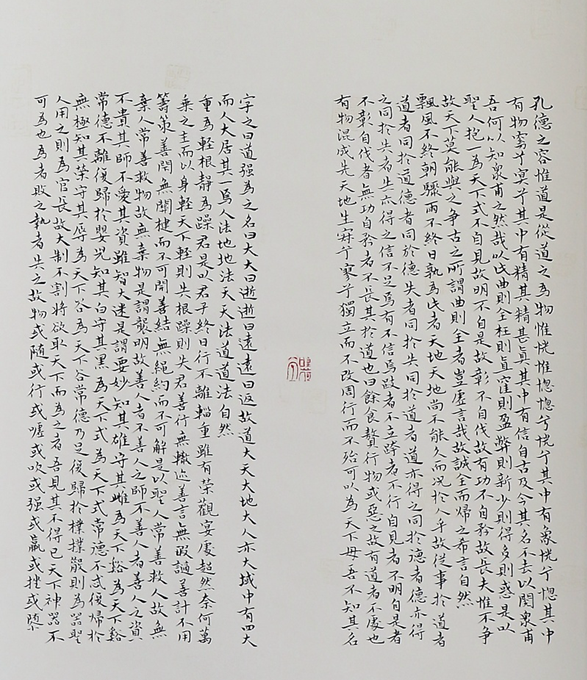 孔德之容惟道是從道之為物惟恍惟惚惚兮恍兮其中有象恍兮惚其中
有物窈兮冥兮其中有精其精甚真其中有信自古及今其名不去以閱衆甫
吾何以知衆甫之然哉以此曲則全枉則直窪則盈弊則新少則得多則惑是以
聖人抱一為天下式不自見故明不自是故彰不自伐故有功不自矜故長夫惟不爭
故天下莫能與之爭古之所謂曲則全者豈虛言哉故誠全而歸之希言自然
飄風不終朝驟雨不終日孰為此者天地天地尚不能久而況於人乎故從事於道者
道者同於道德者同於德失者同於失同於道者道亦得之同於德者德亦得
之同於失者失亦得之信不足焉有不信焉跂者不立跨者不行自見者不明自是者
不彰自伐者無功自矜者不長其於道也曰餘食贅行物或惡之故有道者不處也
有物混成先天地生寂兮寥兮獨立而不改周行而不殆可以為天下母吾不知其名
字之曰道强為之名曰大大曰逝逝曰遠遠曰返故道大天大地大人亦大域中有四大
而人大居其一焉人法地地法天天法道道法自然
重為輕根靜為躁君是以君子終日行不離輜重雖有榮觀宴處超然奈何萬
乘之主而以身輕天下輕則失根躁則失君善行無轍迹善言無瑕讁善計不用
籌策善閉無關楗而不可開善結無繩約而不可解是以聖人常善救人故無
棄人常善救物故無棄物是謂襲明故善人者不善人之師不善人者善人之資
不貴其師不愛其資雖智大迷是謂要妙知其雄守其雌為天下谿為天下谿
常德不離復歸於嬰兒知其白守其黑為天下式為天下式常德不忒復歸於
無極知其榮守其辱為天下谷為天下谷常德乃足復歸於樸樸散則為器聖
人用之則為官長故大制不割將欲取天下而為之者吾見其不得已天下神器不
可為也為者敗之執者失之故物或隨或行或噓或吹或强或羸或挫或隳